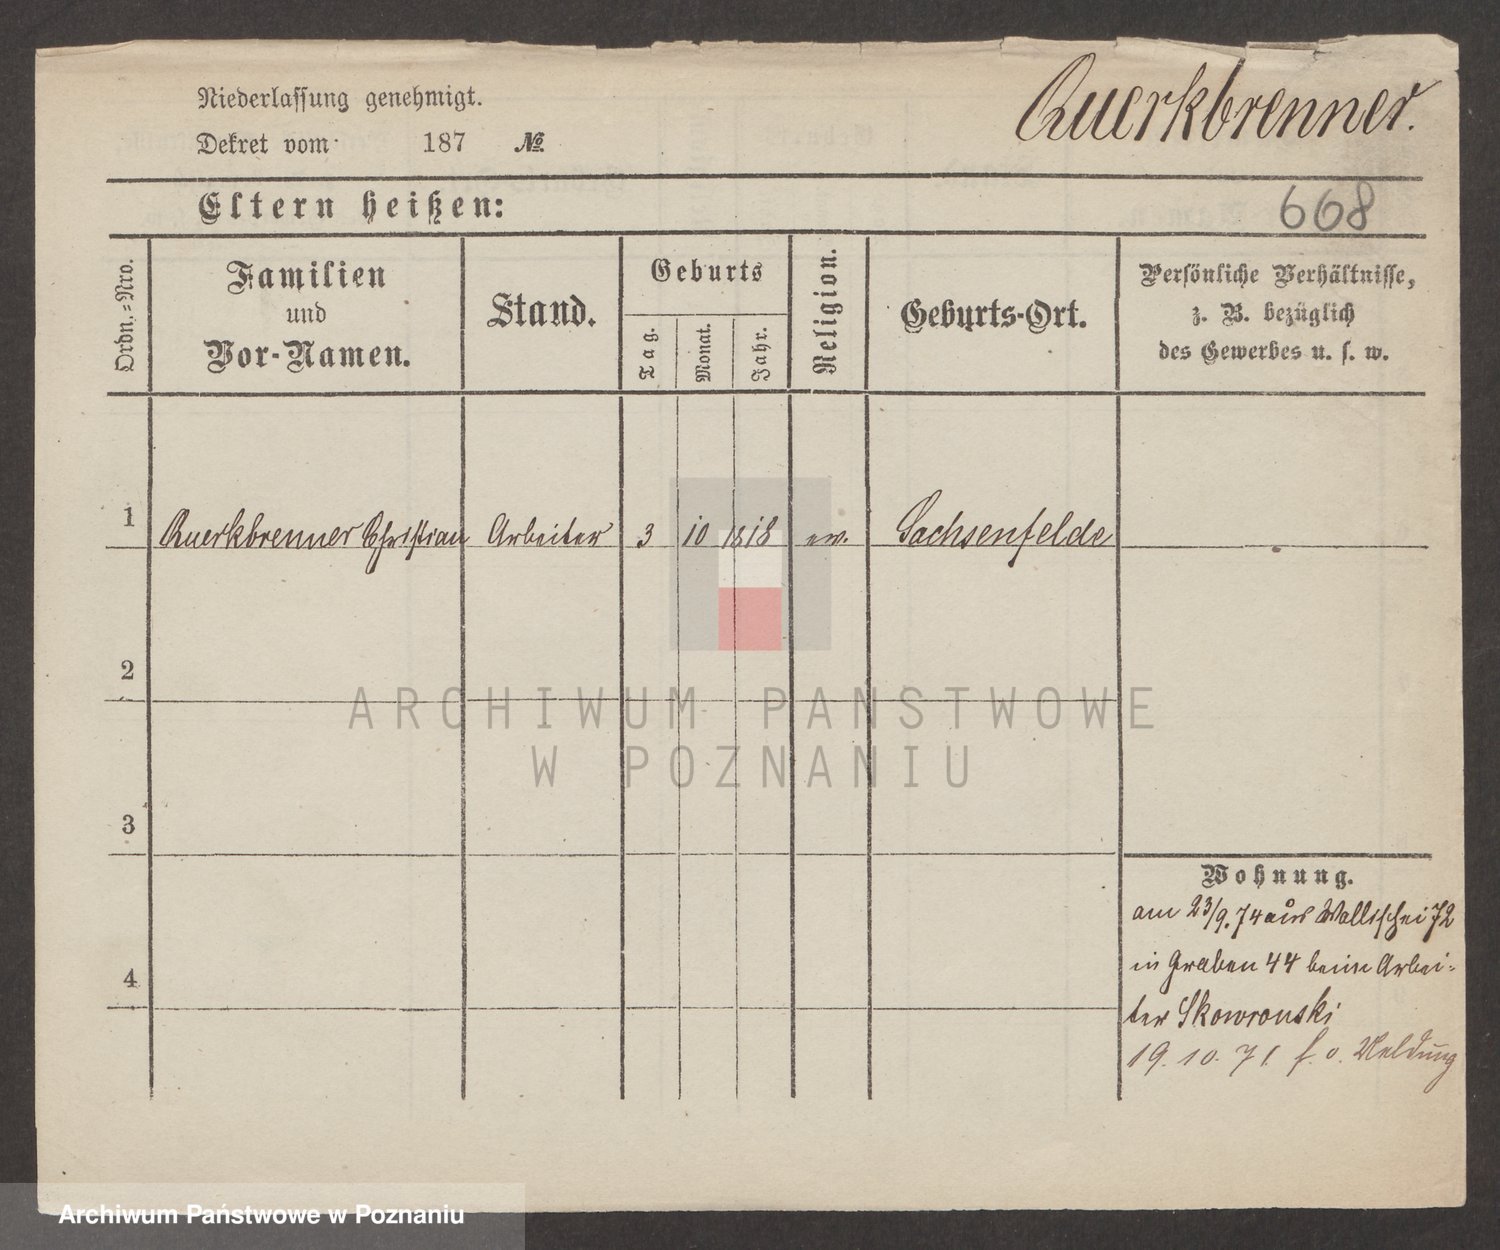 Niederlassung genehmigt.
Querkbrenner.
Dekret vom 187 №
Eltern heißen:
668
Ordn.=Nro.
Familien
und
Vor-Namen.
Stand.
Geburts
Tag.
Monat.
Jahr.
Religion.
Geburts-Ort.
Persönliche Verhältnisse,
z. B. bezüglich
des Gewerbes u. s. w.
1 Querkbrenner Christian Arbeiter 3 10 1818 ev. Sachsenfelde
2
ARCHIWUM PAŃSTWOWE
W POZNANIU
3
Wohnung.
am 23/9. 74 aus Wallischei 72
4
in Graben 44 beim Arbei-
ter Skowronski
19. 10. 71. f. o. Meldung
Archiwum Państwowe w Poznaniu